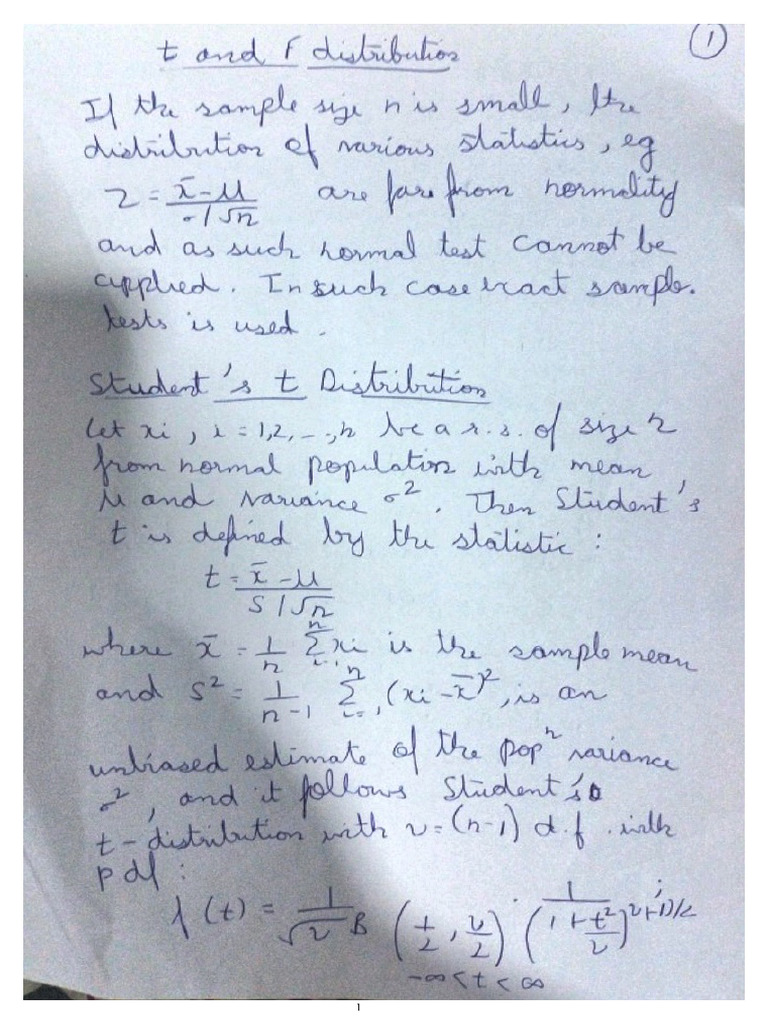 t and F distribution
1
If the sample size n is small, the
distribution of various statistics, eg
Z = x̄ - μ / σ/√n are far from normality
and as such normal test cannot be
applied. In such case exact sample.
tests is used.
Student's t Distribution
Let xi, i = 1,2, ..., n be a r.s. of size n
from normal population with mean
μ and variance σ². Then Student's
t is defined by the statistic:
t = x̄ - μ / S/√n
where x̄ = 1/n Σ_{i=1}^{n} xi is the sample mean
and S² = 1/(n-1) Σ_{i=1}^{n} (xi - x̄)², is an
unbiased estimate of the popⁿ variance
σ², and it follows Student's
t-distribution with ν = (n-1) d.f. with
pdf:
f(t) = 1/√ν B (1/2, ν/2) · 1/(1 + t²/ν)^(ν+1)/2 ;
-∞ < t < ∞
1